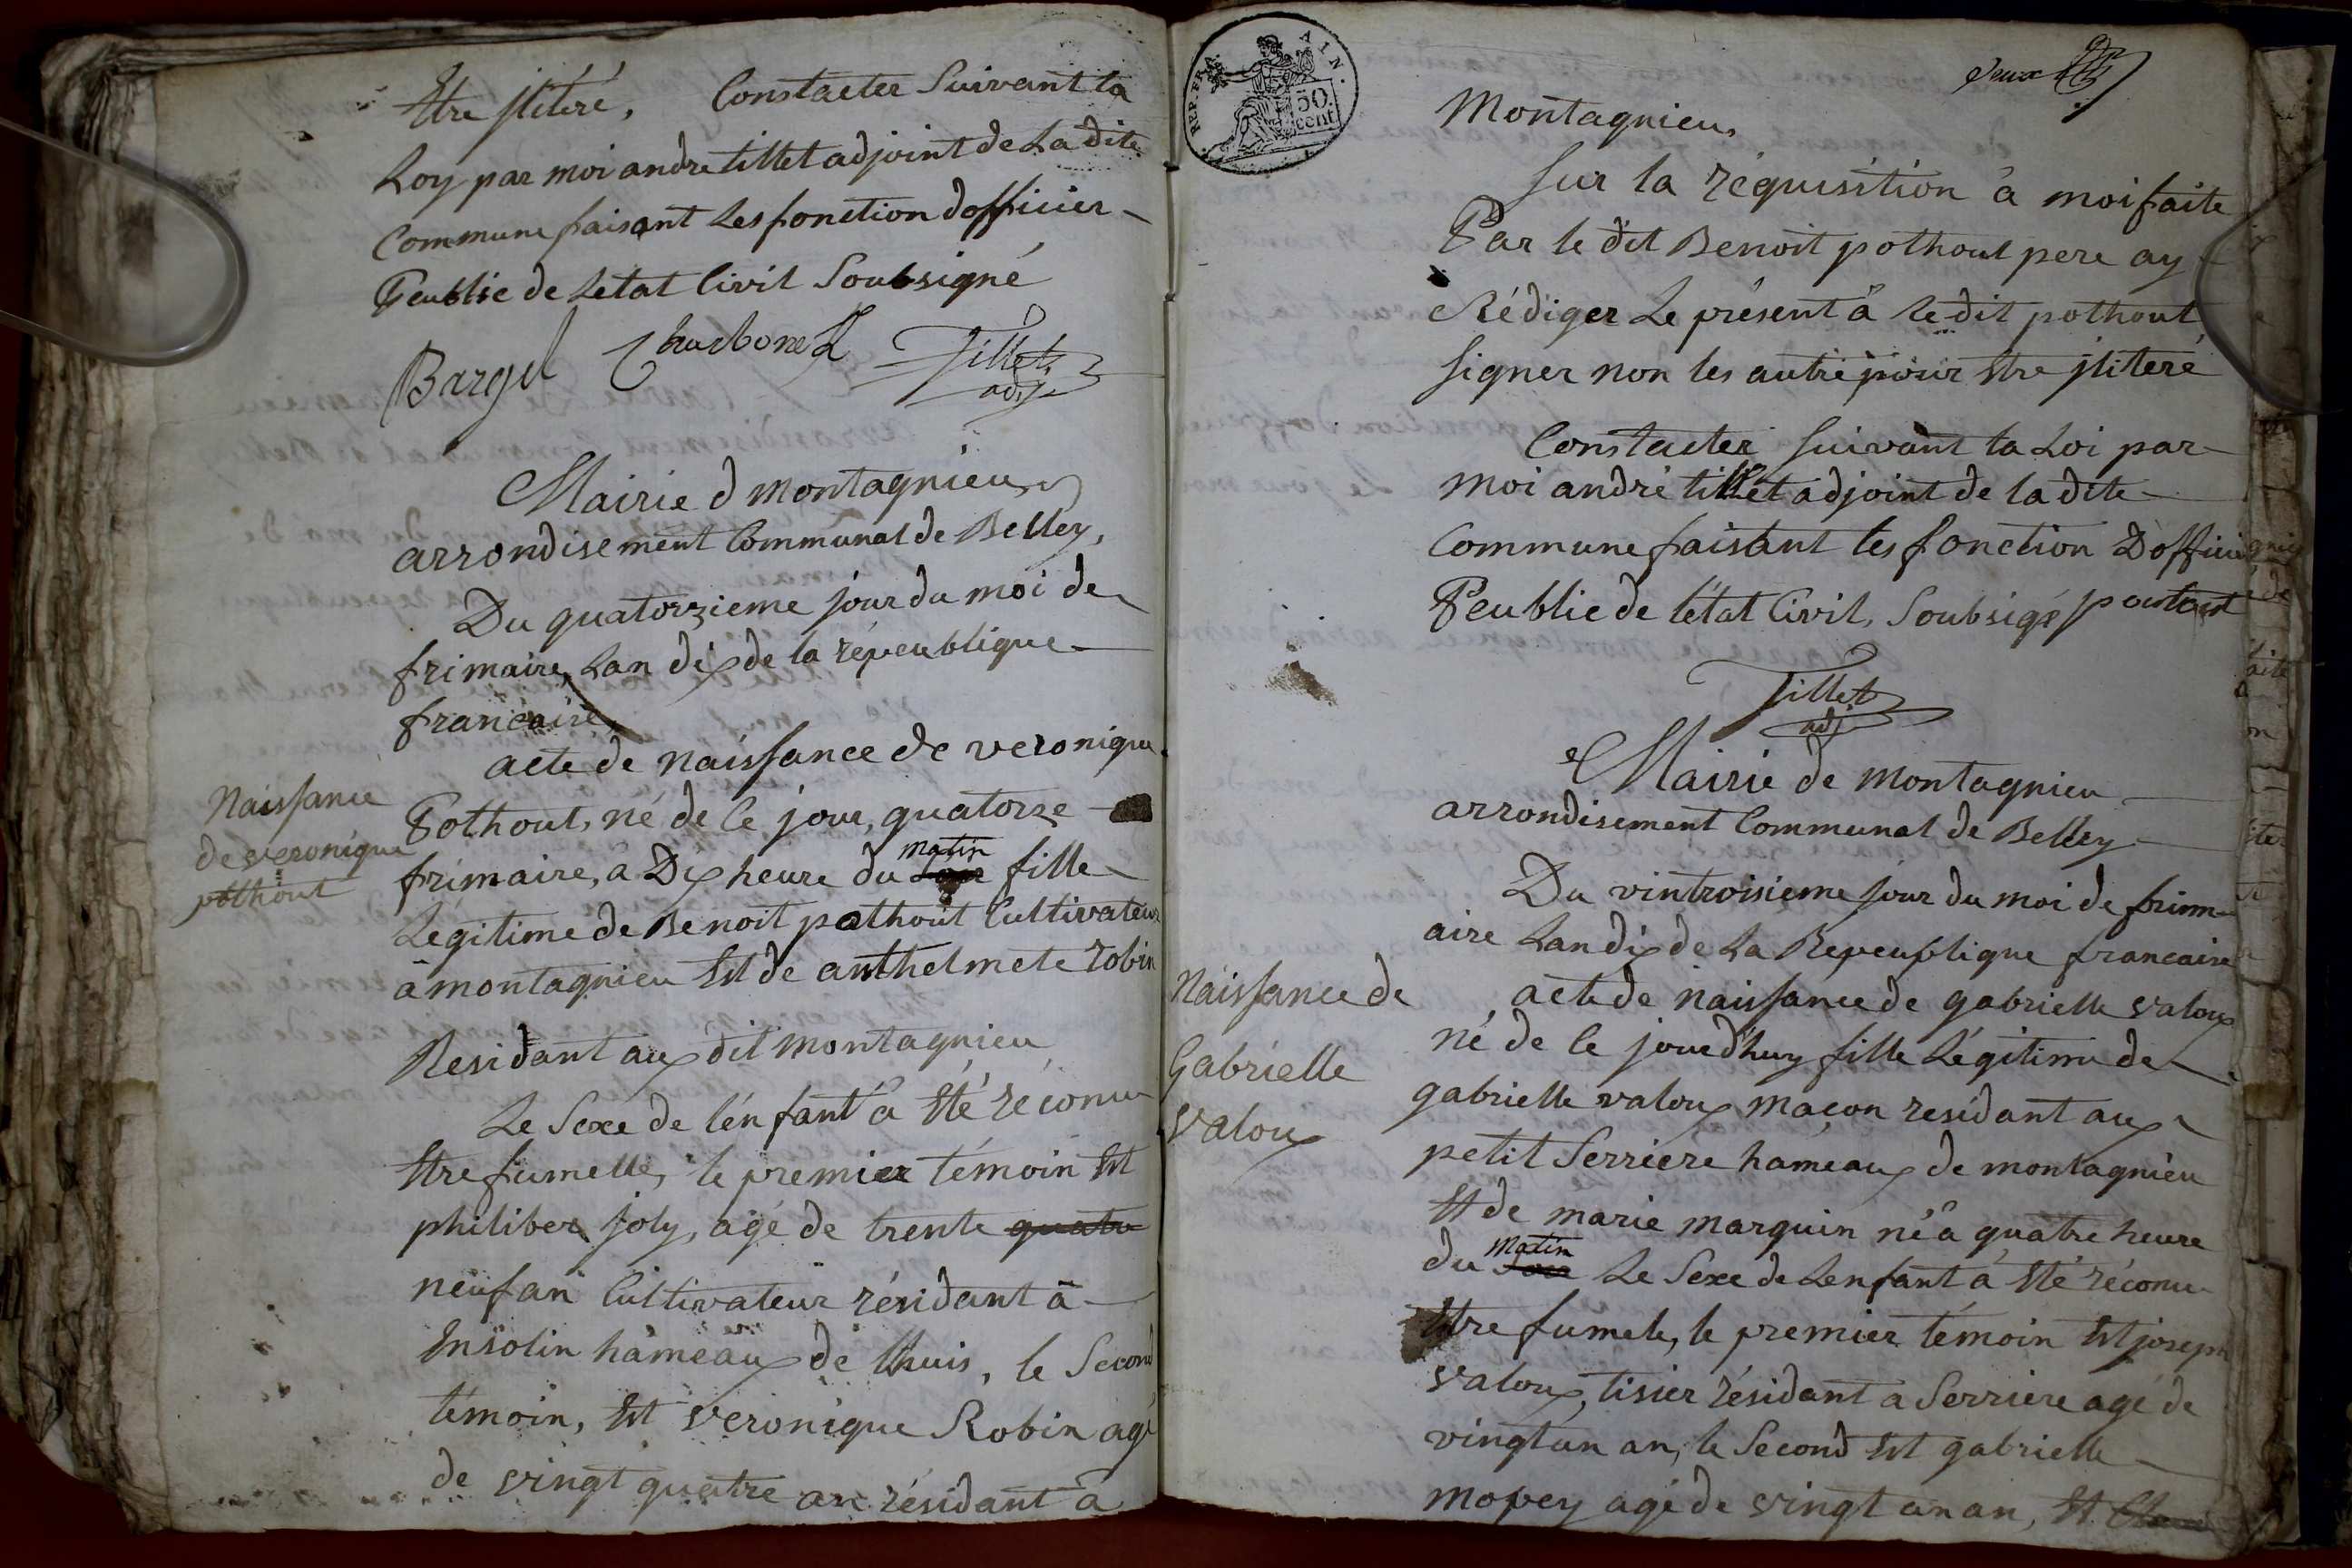 Etre jliteré, Constacter Suivant la
Loy par moi andre tillet adjoint de La dite
Commune faisant Les fonction dofficier
Peublic de Letat Civil Soubsigné
Bargel Charbonel Tillet
adj
Mairie d montagnieu
arrondisement Communal de Belley,
Du quatorzieme jour du moi de
frimaire, Lan dix de la répeublique
francaise,
acte de naissance de veronique
Naissance
de veronique
pothout
Pothout, né de Ce jour, quatorze
frimaire, a Dix heure du Soir matin fille
Légitime de Benoit pothout Cultivateur
a montagnieu Et de anthelmete robin
Residant aux dit montagnieu
Le Sexe de lénfant a Eté réconu
Etre fumelle, le premier témoin Est
philiber joly, agé de trente quatre
neuf an Cultivateur résidant a
Insolin hameaux de lhuis, le Second
témoin, Est veronique Robin agé
de vingt quatre an résidant a
REP. FRA. AIN.
50
cent
deux
Montagnieu,
Sur la réquisition a moi faite
Par le dit Benoit pothout pere ay
Rédiger Le présent a le dit pothout
Signer non les autre pour Etre jliteré
Constacter Suivant la Loi par
moi andré tillet adjoint de la dite
Commune faisant les fonction D'officier
Peublic de létat Civil, Soubsigé potout
Tillet
adj
Mairie de montagnieu
arrondisement Communal de Belley
Du vintroisieme jour du moi de frim
aire Lan dix de La Repeublique francaise
Naissance de
Gabrielle
Valoux
acte de naissance de gabrielle valoux
né de Ce jourdhuy fille Légitime de
gabrielle valoux maçon residant aux
petit Serriere hameaux de montagnieu
Et de marie marquin né a quatre heure
du Soir matin Le Sexe de Lenfant a Eté réconu
Etre fumele, le premier témoin Est joseph
valoux, tisier résidant a Serriere agé de
vingt un an, le Second Est gabrielle
mopey agé de vingt un an, Et